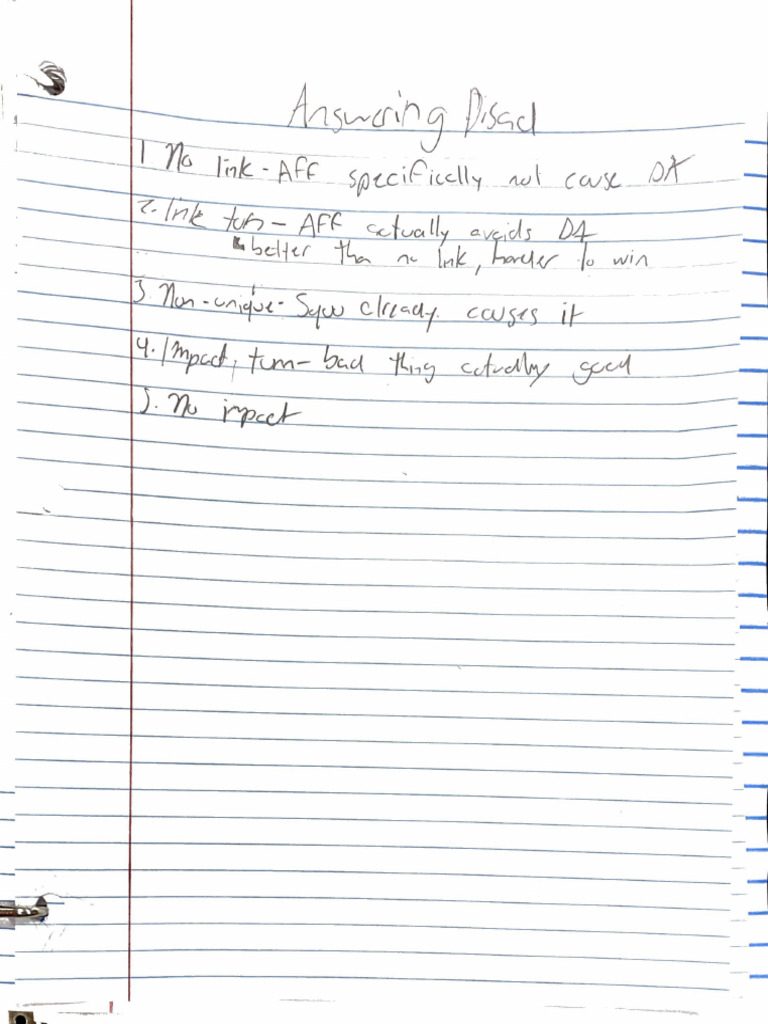 Answering Disad
1 No link - AFF specifically not cause DA
2. link turn - AFF actually avoids DA
↳ better than no link, harder to win
3. Non-unique - Squo already causes it
4. Impact turn - bad thing actually good
5. No impact